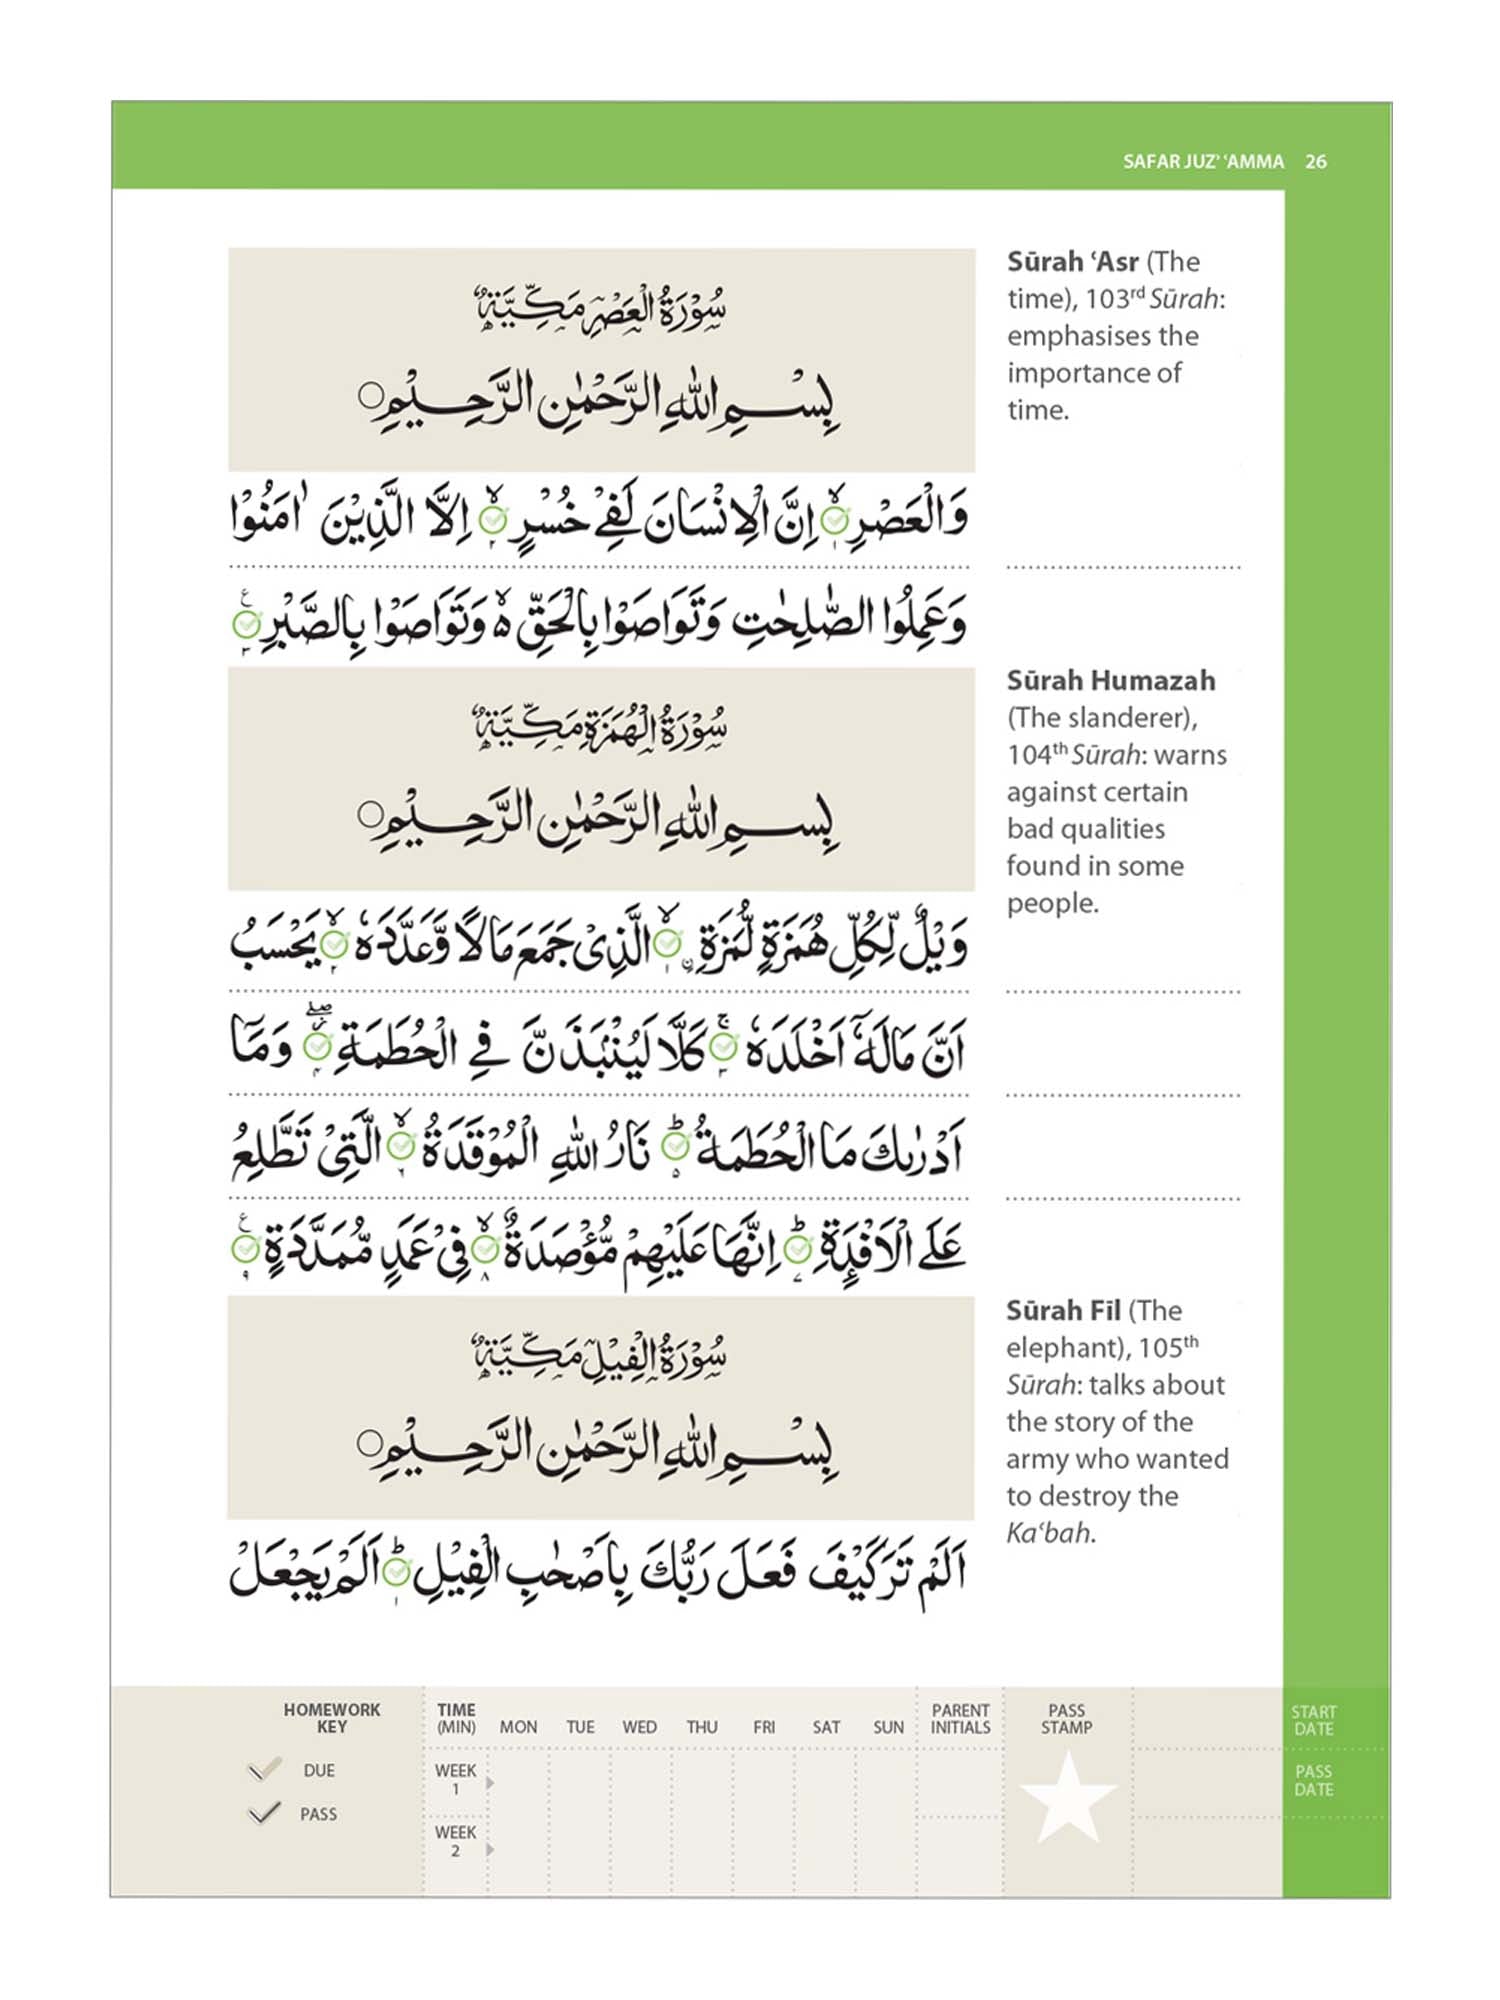 SAFAR JUZ’ ‘AMMA 26
سُوْرَةُ الْعَصْرِ مَكِّيَّةٌ
بِسْمِ اللهِ الرَّحْمٰنِ الرَّحِيْمِ
وَالْعَصْرِ ۙ۱ اِنَّ الْاِنْسَانَ لَفِيْ خُسْرٍ ۙ۲ اِلَّا الَّذِيْنَ اٰمَنُوْا
وَعَمِلُوا الصّٰلِحٰتِ وَتَوَاصَوْا بِالْحَقِّ ۙ۬ وَتَوَاصَوْا بِالصَّبْرِ ۳ ع
Sūrah ‘Asr (The
time), 103rd Sūrah:
emphasises the
importance of
time.
سُوْرَةُ الْهُمَزَةِ مَكِّيَّةٌ
بِسمِ اللهِ الرَّحْمٰنِ الرَّحِيْمِ
وَيْلٌ لِّكُلِّ هُمَزَةٍ لُّمَزَةِ ۙ۱ ن الَّذِىْ جَمَعَ مَالًا وَّعَدَّدَهٗ ۙ۲ يَحْسَبُ
اَنَّ مَالَهٗۤ اَخْلَدَهٗ ۚ۳ كَلَّا لَيُنْۢبَذَنَّ فِي الْحُطَمَةِ ۖ۴ وَمَاۤ
اَدْرٰىكَ مَا الْحُطَمَةُ ؕ۵ نَارُ اللهِ الْمُوْقَدَةُ ۙ۶ الَّتِيْ تَطَّلِعُ
عَلَى الْاَفْـِٕدَةِ ؕ۷ اِنَّهَا عَلَيْهِمْ مُّؤْصَدَةٌ ۙ۸ فِيْ عَمَدٍ مُّمَدَّدَةٍ ۹ ع
Sūrah Humazah
(The slanderer),
104th Sūrah: warns
against certain
bad qualities
found in some
people.
سُوْرَةُ الْفِيْلِ مَكِّيَّةٌ
بِسْمِ اللهِ الرَّحْمٰنِ الرَّحِيْمِ
اَلَمْ تَرَ كَيْفَ فَعَلَ رَبُّكَ بِاَصْحٰبِ الْفِيْلِ ؕ۱ اَلَمْ يَجْعَلْ
Sūrah Fīl (The
elephant), 105th
Sūrah: talks about
the story of the
army who wanted
to destroy the
Ka‘bah.
HOMEWORK
KEY
DUE
PASS
TIME
(MIN) MON TUE WED THU FRI SAT SUN
WEEK
1
WEEK
2
PARENT
INITIALS
PASS
STAMP
START
DATE
PASS
DATE